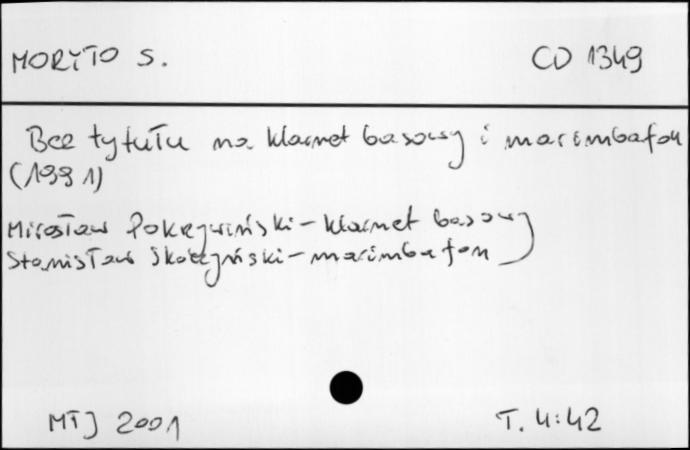 MORYTO S. CD 1349
Bez tytułu na klarnet basowy i marimbafon
(1991)
Mirosław Pokrzywiński - klarnet basowy
Stanisław Skoczyński - marimbafon
MTJ 2001 T. 4:42